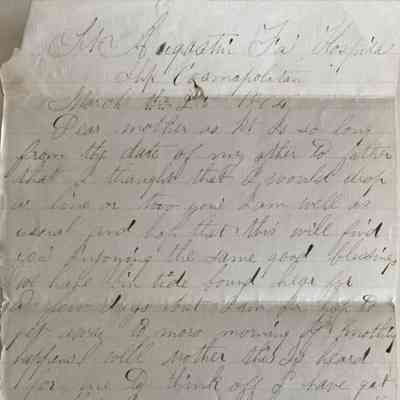 St Augustin Fla Hospital
Ship Cosmopolitan
March 1864
Dear mother as it is so long
from the date of my other to father
that I thought that I would drop
a line or two you I am well as
usual and hop that this will find
you injoying the same good blessing
we have bin tide bound hear for
a few days but I am in hop to
get away to morow morning if nothing
happens well mother this is heard
for me to think off I have got